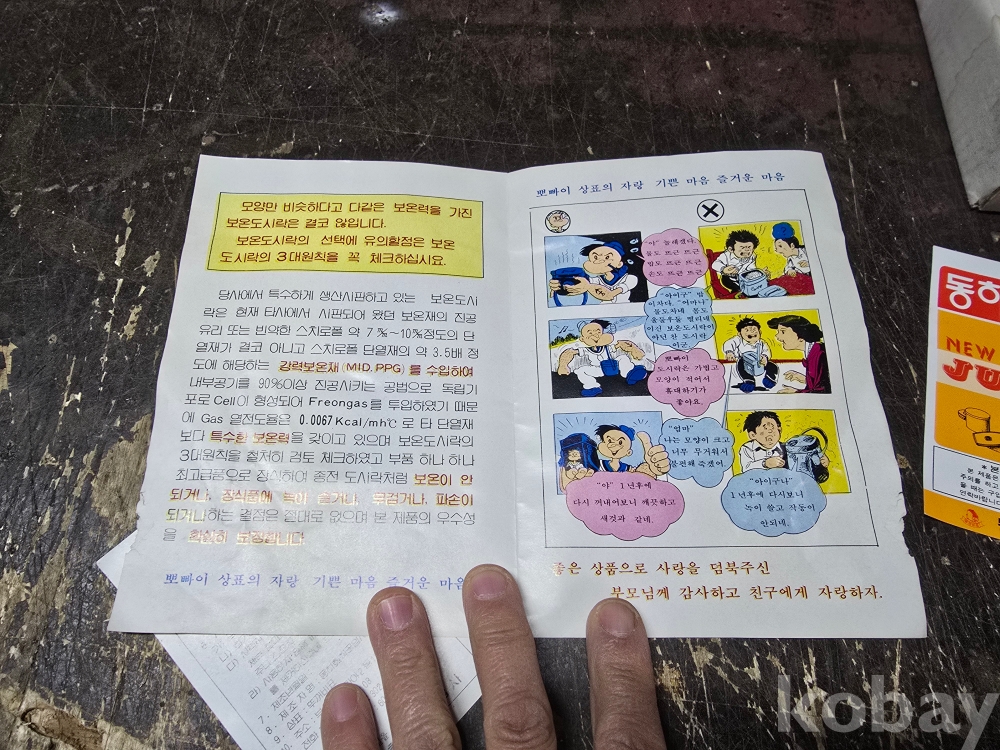 모양만 비슷하다고 다같은 보온력을 가진
보온도시락은 결코 않입니다.
보온도시락의 선택에 유의할점은 보온
도시락의 3대원칙을 꼭 체크하십시요.
당사에서 특수하게 생산시판하고 있는 보온도시
락은 현재 타사에서 시판되어 왔던 보온재의 진공
유리 또는 빈약한 스치로폴 약 7‰~10%정도의 단
열재가 결코 아니고 스치로폴 단열재의 약 3.5배 정
도에 해당하는 강력보온재 (MID. PPG) 를 수입하여
내부공기를 90%이상 진공시키는 공법으로 독립기
포로 Cell이 형성되어 Freongas를 투입하였기 때문
에 Gas 열전도율은 0.0067Kcal/mh℃로 타 단열재
보다 특수한 보온력을 갖이고 있으며 보온도시락의
3대원칙을 철저히 검토 체크하였고 부품 하나 하나
최고급품으로 장식하여 종전 도시락처럼 보온이 안
되거나, 장식품에 녹이 슬거나, 무겁거나, 파손이
되거나하는 결점은 절대로 없으며 본 제품의 우수성
을 확실히 보장합니다.
뽀빠이 상표의 자랑 기쁜 마음 즐거운 마음
뽀빠이 상표의 자랑 기쁜 마음 즐거운 마음
"야" 놀래겠다.
물도 뜨끈 뜨끈
밥도 뜨끈 뜨끈
손도 뜨끈 뜨끈
"아이구" 밥
이차다. "어마나"
물도차네 몸도
올들우들 떨리네
이건 보온도시락이
아닌 찬 도시락
이군
뽀빠이
도시락은 가볍고
모양이 적어서
휴대하기가
좋아요.
"엄마"
나는 모양이 크고
너무 무거워서
불편해 죽겠어.
"야" 1년후에
다시 꺼내어보니 깨끗하고
새것과 같네.
"아이구나"
1년후에 다시보니
녹이 쓸고 작동이
안되네.
좋은 상품으로 사랑을 덤북주신
부모님께 감사하고 친구에게 자랑하자.
NEW
JU
kobay